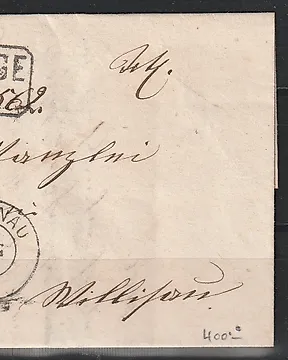 GE
562.
Kanzlei
NAU
Willisau
400.-